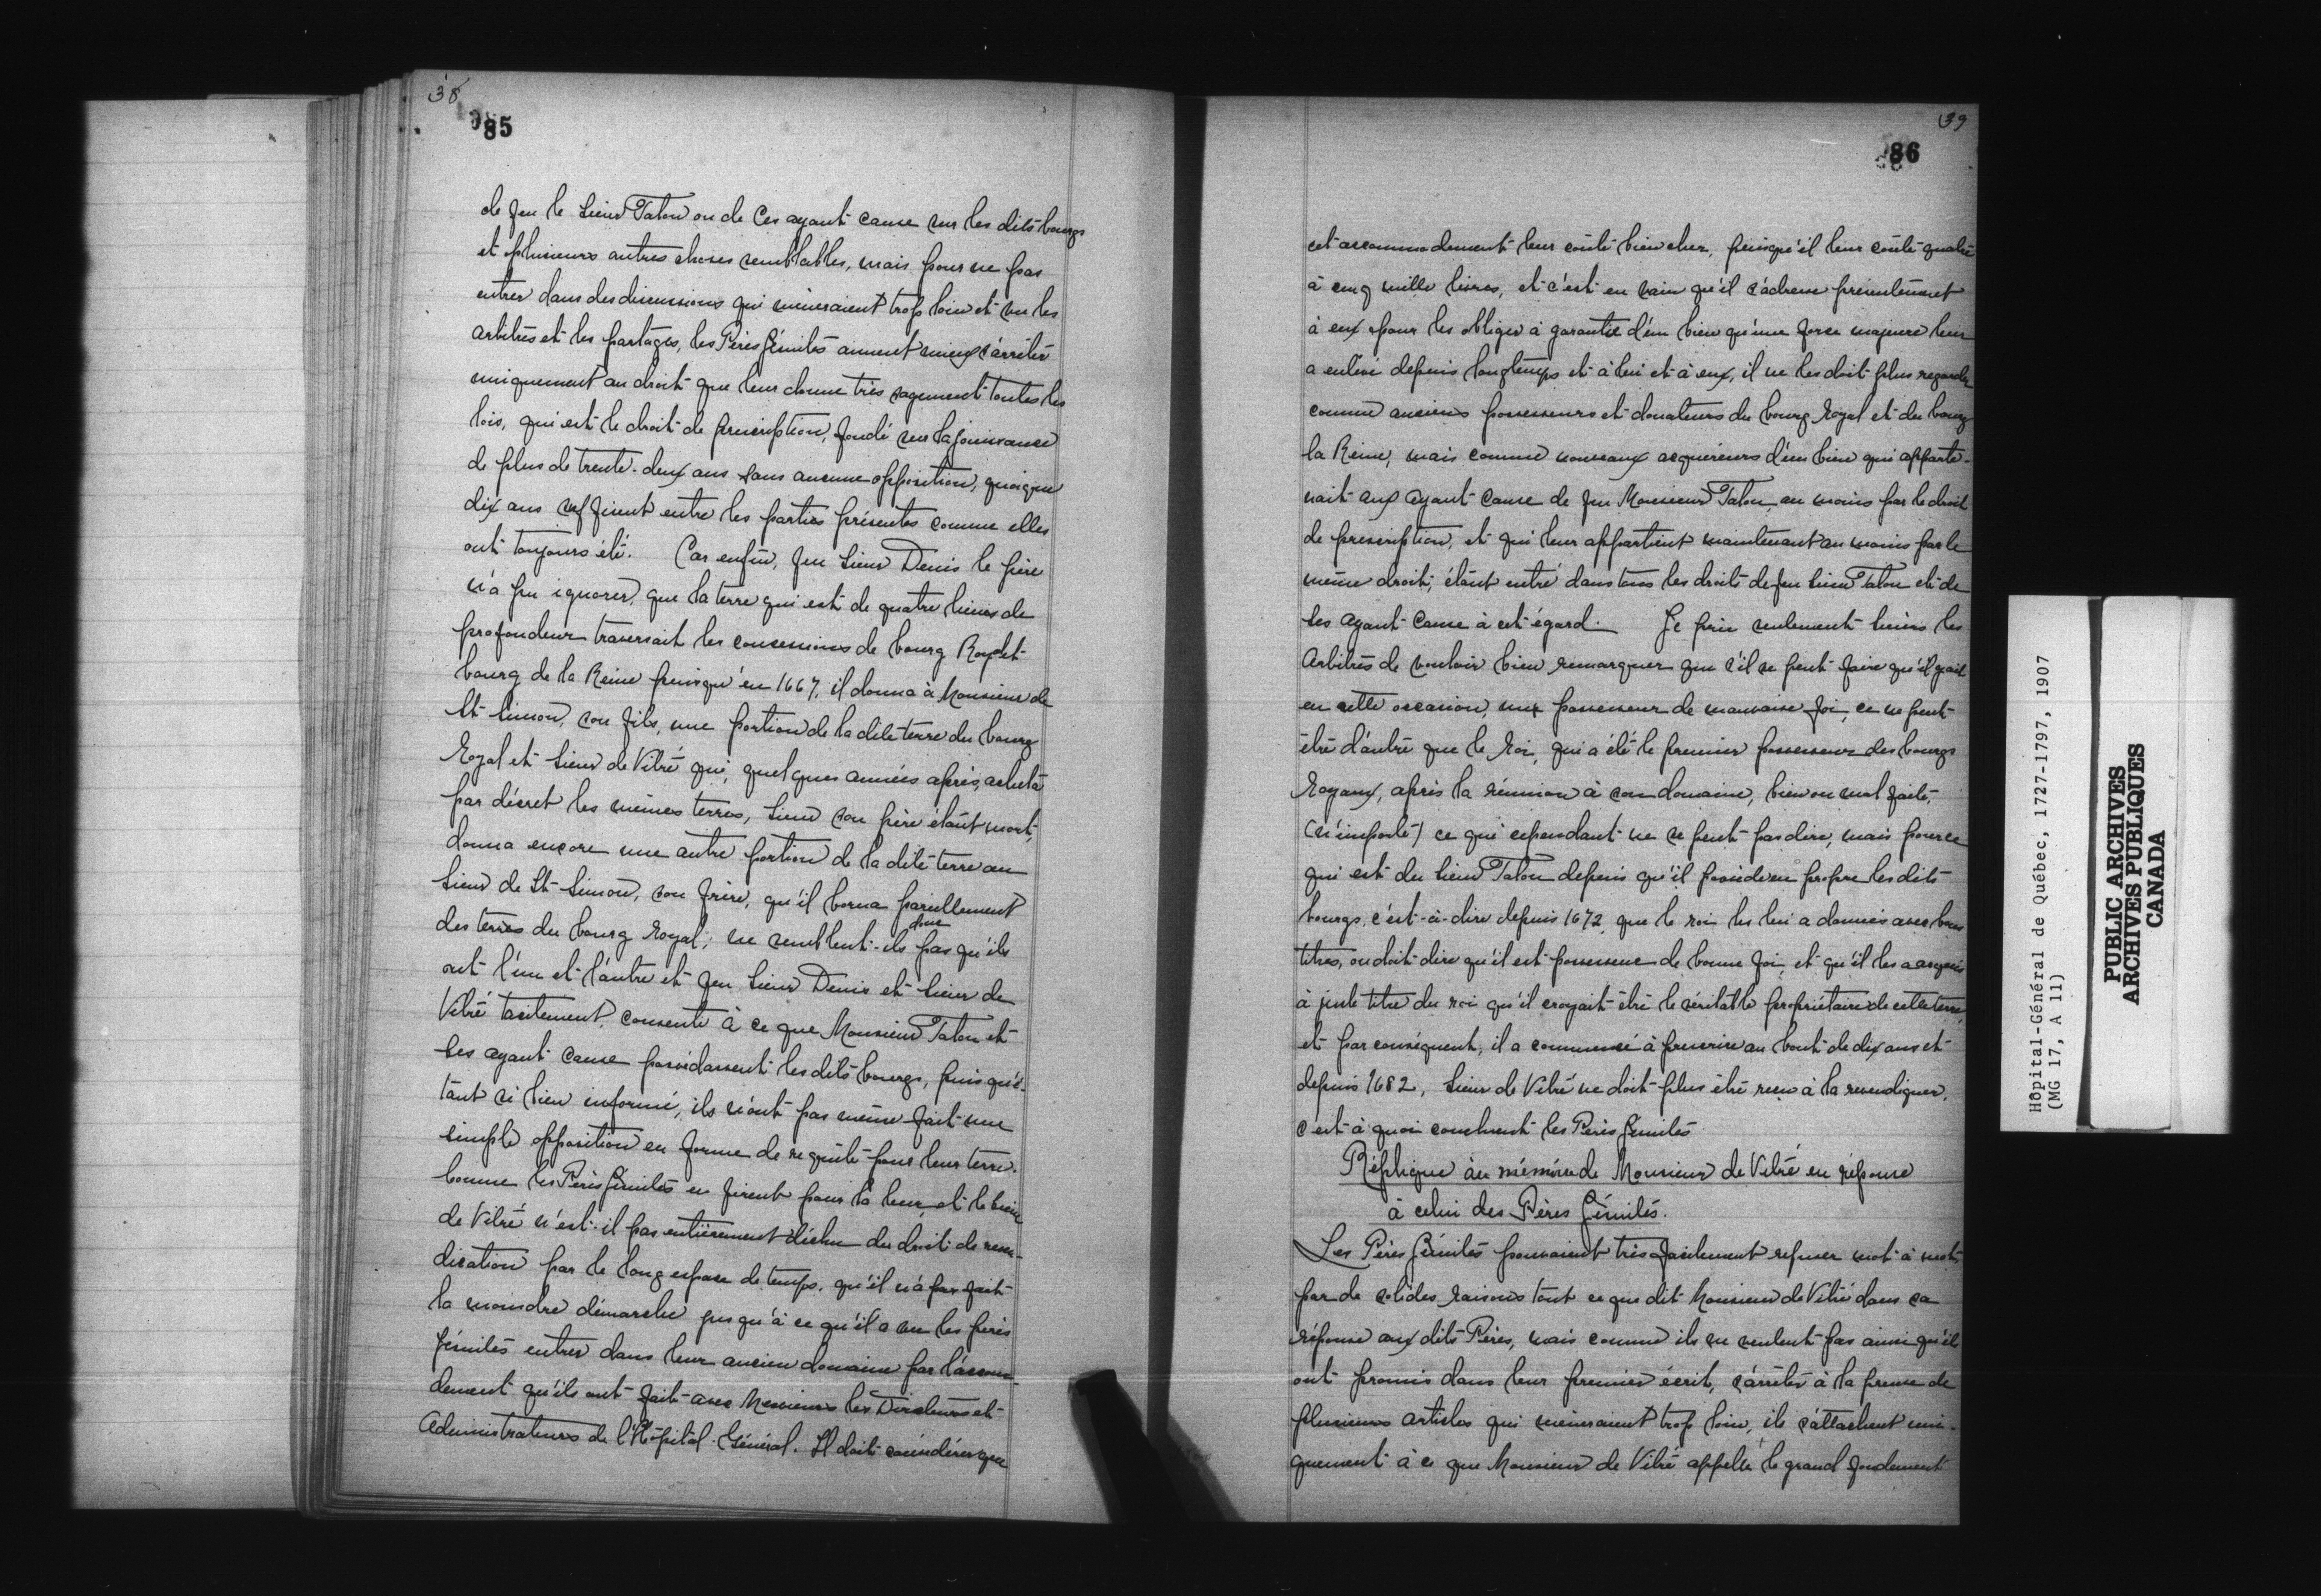 38
85
de feu le Sieur Talon ou de Ces ayant cause sur les dits bourgs
et plusieurs autres choses semblables, mais pour ne pas
entrer dans des discussions qui mèneraient trop loin et vu les
arbitres et les partages, les Pères Jésuites aiment mieux s'arrêter
uniquement au droit que leur donne très sagement toutes les
lois, qui est le droit de prescription, fondé sur la jouissance
de plus de trente-deux ans sans aucune opposition, quoique
dix ans suffisent entre les parties présentes comme elles
ont toujours été. Car enfin, feu Sieur Denis le père
n'a pu ignorer, que la terre qui est de quatre lieues de
profondeur traversait les concessions de bourg Royal et
bourg de la Reine puisqu'en 1667, il donna à Monsieur de
St-Simon, son fils, une portion de la dite terre du bourg
Royal et Sieur de Vitré qui, quelques années après, acheta
par décret les mêmes terres, Sieur son père étant mort,
donna encore une autre portion de la dite terre au
Sieur de St-Simon, son frère, qu'il borna pareillement
des terres du bourg Royal; ne semblent-ils donc pas qu'ils
ont l'un et l'autre et feu Sieur Denis et Sieur de
Vitré tacitement, consenti à ce que Monsieur Talon et
ses ayant cause possédassent les dits bourgs, puis qu'é-
tant si bien informé, ils n'ont pas même fait une
simple opposition en forme de requête pour leur terre.
comme les Pères Jésuites en firent pour la leur, et le Sieur
de Vitré n'est-il pas entièrement déchu du droit de reven-
dication par le long espace de temps, qu'il n'a pas fait
la moindre démarche jusqu'à ce qu'il a vu les pères
jésuites entrer dans leur ancien domaine par l'accom-
dement qu'ils ont fait avec Messieurs les Directeurs et
Administrateurs de l'Hôpital-Général. Il doit considérer que
39
86
cet accommodement leur coûte bien cher, puisqu'il leur coûte quatre
à cinq mille livres, et c'est en vain qu'il s'adresse présentement
à eux pour les obliger à garantie d'un bien qu'une force majeure leur
a enlevé depuis longtemps et à lui et à eux, il ne les doit plus regarder
comme anciens possesseurs et donateurs du bourg Royal et du bourg
la Reine, mais comme nouveaux acquéreurs d'un bien qui apparte-
nait aux ayant cause de feu Monsieur Talon au moins par le droit
de prescription, et qui leur appartient maintenant au moins par le
même droit, étant entré dans tous les droits de feu Sieur Talon et de
ses ayant cause à cet égard. Je prie seulement Sieurs les
Arbitres de vouloir bien remarquer que s'il se peut faire qu'il y ait
en cette occasion, un possesseur de mauvaise foi, ce ne peut
être d'autre que le Roi, qui a été le premier possesseur des bourgs
Royaux, après la réunion à son domaine, bien ou mal faite,
(n'importe) ce qui cependant ne se peut pas dire, mais pour ce
qui est du Sieur Talon depuis qu'il possède en propre les dits
bourgs, c'est-à-dire depuis 1672, que le roi les lui a donnés avec bons
titres, on doit dire qu'il est possesseur de bonne foi, et qu'il les a acquis
à juste titre du roi qu'il croyait être le véritable propriétaire de cette terre,
et par conséquent, il a commencé à prescrire au bout de dix ans et
depuis 1682, Sieur de Vitré ne doit plus être reçu à la revendiquer.
c'est à quoi concluent les Pères Jésuites
Réplique au mémoire de Monsieur de Vitré en réponse
à celui des Pères Jésuites.
Les Pères Jésuites pouvaient très facilement refuser mot à mot
par de solides raisons tout ce que dit Monsieur de Vitré dans sa
réponse aux dits Pères, mais comme ils ne veulent pas ainsi qu'ils
ont promis dans leur premier écrit, s'arrêter à la preuve de
plusieurs articles qui mèneraient trop loin, ils s'attachent uni-
quement à ce que Monsieur de Vitré appelle le grand fondement
Hôpital-Général de Québec, 1727-1797, 1907
(MG 17, A 11)
PUBLIC ARCHIVES
ARCHIVES PUBLIQUES
CANADA